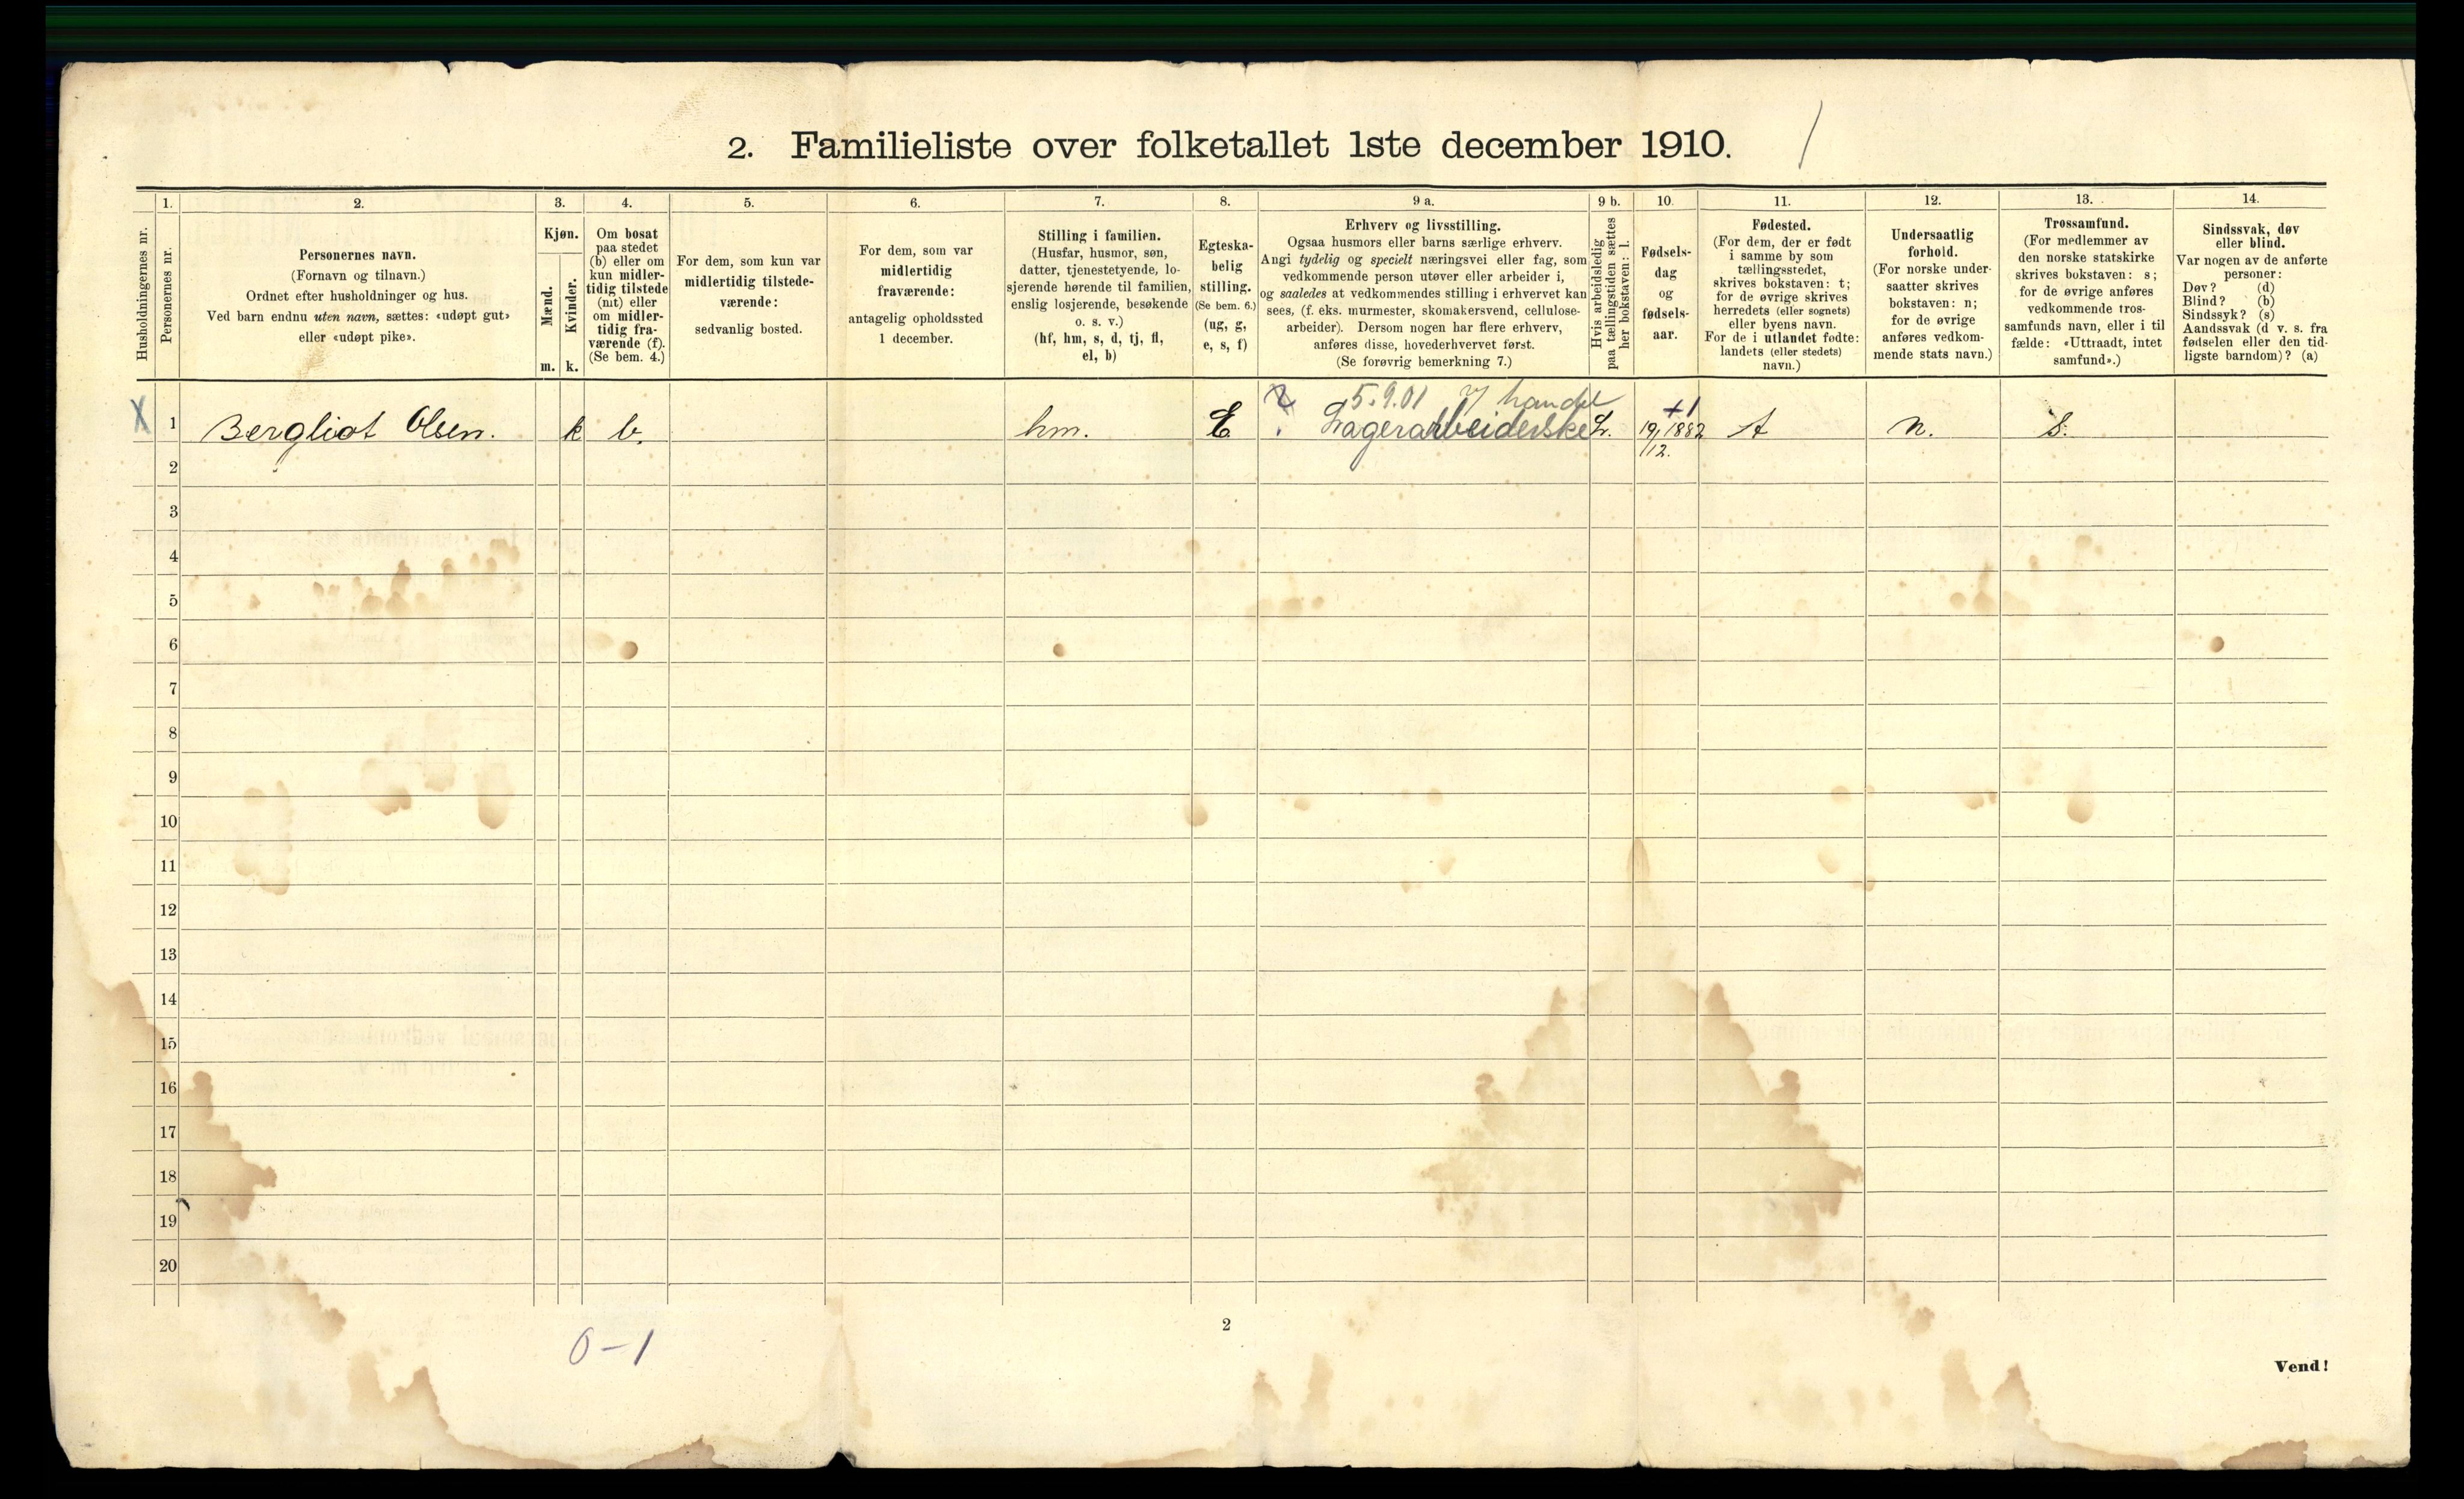 2. Familieliste over folketallet 1ste december 1910.
Husholdningernes nr.
1.
Personernes nr.
2.
Personernes navn.
(Fornavn og tilnavn.)
Ordnet efter husholdninger og hus.
Ved barn endnu uten navn, sættes: «udøpt gut»
eller «udøpt pike».
3.
Kjøn.
Mænd.
Kvinder.
m.
k.
4.
Om bosat
paa stedet
(b) eller om
kun midler-
tidig tilstede
(mt) eller
om midler-
tidig fra-
værende (f).
(Se bem. 4.)
5.
For dem, som kun var
midlertidig tilstede-
værende:
sedvanlig bosted.
6.
For dem, som var
midlertidig
fraværende:
antagelig opholdssted
1 december.
7.
Stilling i familien.
(Husfar, husmor, søn,
datter, tjenestetyende, lo-
sjerende hørende til familien,
enslig losjerende, besøkende
o. s. v.)
(hf, hm, s, d, tj, fl,
el, b)
8.
Egteska-
belig
stilling.
(Se bem. 6.)
(ug, g,
e, s, f)
9 a.
Erhverv og livsstilling.
Ogsaa husmors eller barns særlige erhverv.
Angi tydelig og specielt næringsvei eller fag, som
vedkommende person utøver eller arbeider i,
og saaledes at vedkommendes stilling i erhvervet kan
sees, (f. eks. murmester, skomakersvend, cellulose-
arbeider). Dersom nogen har flere erhverv,
anføres disse, hovederhvervet først.
(Se forøvrig bemerkning 7.)
9 b.
Hvis arbeidsledig
paa tællingstiden sættes
her bokstaven: l.
10.
Fødsels-
dag
og
fødsels-
aar.
11.
Fødested.
(For dem, der er født
i samme by som
tællingsstedet,
skrives bokstaven: t;
for de øvrige skrives
herredets (eller sognets)
eller byens navn.
For de i utlandet fødte:
landets (eller stedets)
navn.)
12.
Undersaatlig
forhold.
(For norske under-
saatter skrives
bokstaven: n;
for de øvrige
anføres vedkom-
mende stats navn.)
13.
Trossamfund.
(For medlemmer av
den norske statskirke
skrives bokstaven: s;
for de øvrige anføres
vedkommende tros-
samfunds navn, eller i til
fælde: «Uttraadt, intet
samfund».)
14.
Sindssvak, døv
eller blind.
Var nogen av de anførte
personer:
Døv? (d)
Blind? (b)
Sindssyk? (s)
Aandssvak (d v. s. fra
fødselen eller den tid-
ligste barndom)? (a)
5.9.01 v/ handel
X 1 Bergliot Olsen. k b. hm. E. Lagerarbeiderske L. 19/12. 1882 +1 t n. S.
2
3
4
5
6
7
8
9
10
11
12
13
14
15
16
17
18
19
20
0-1
2
Vend!